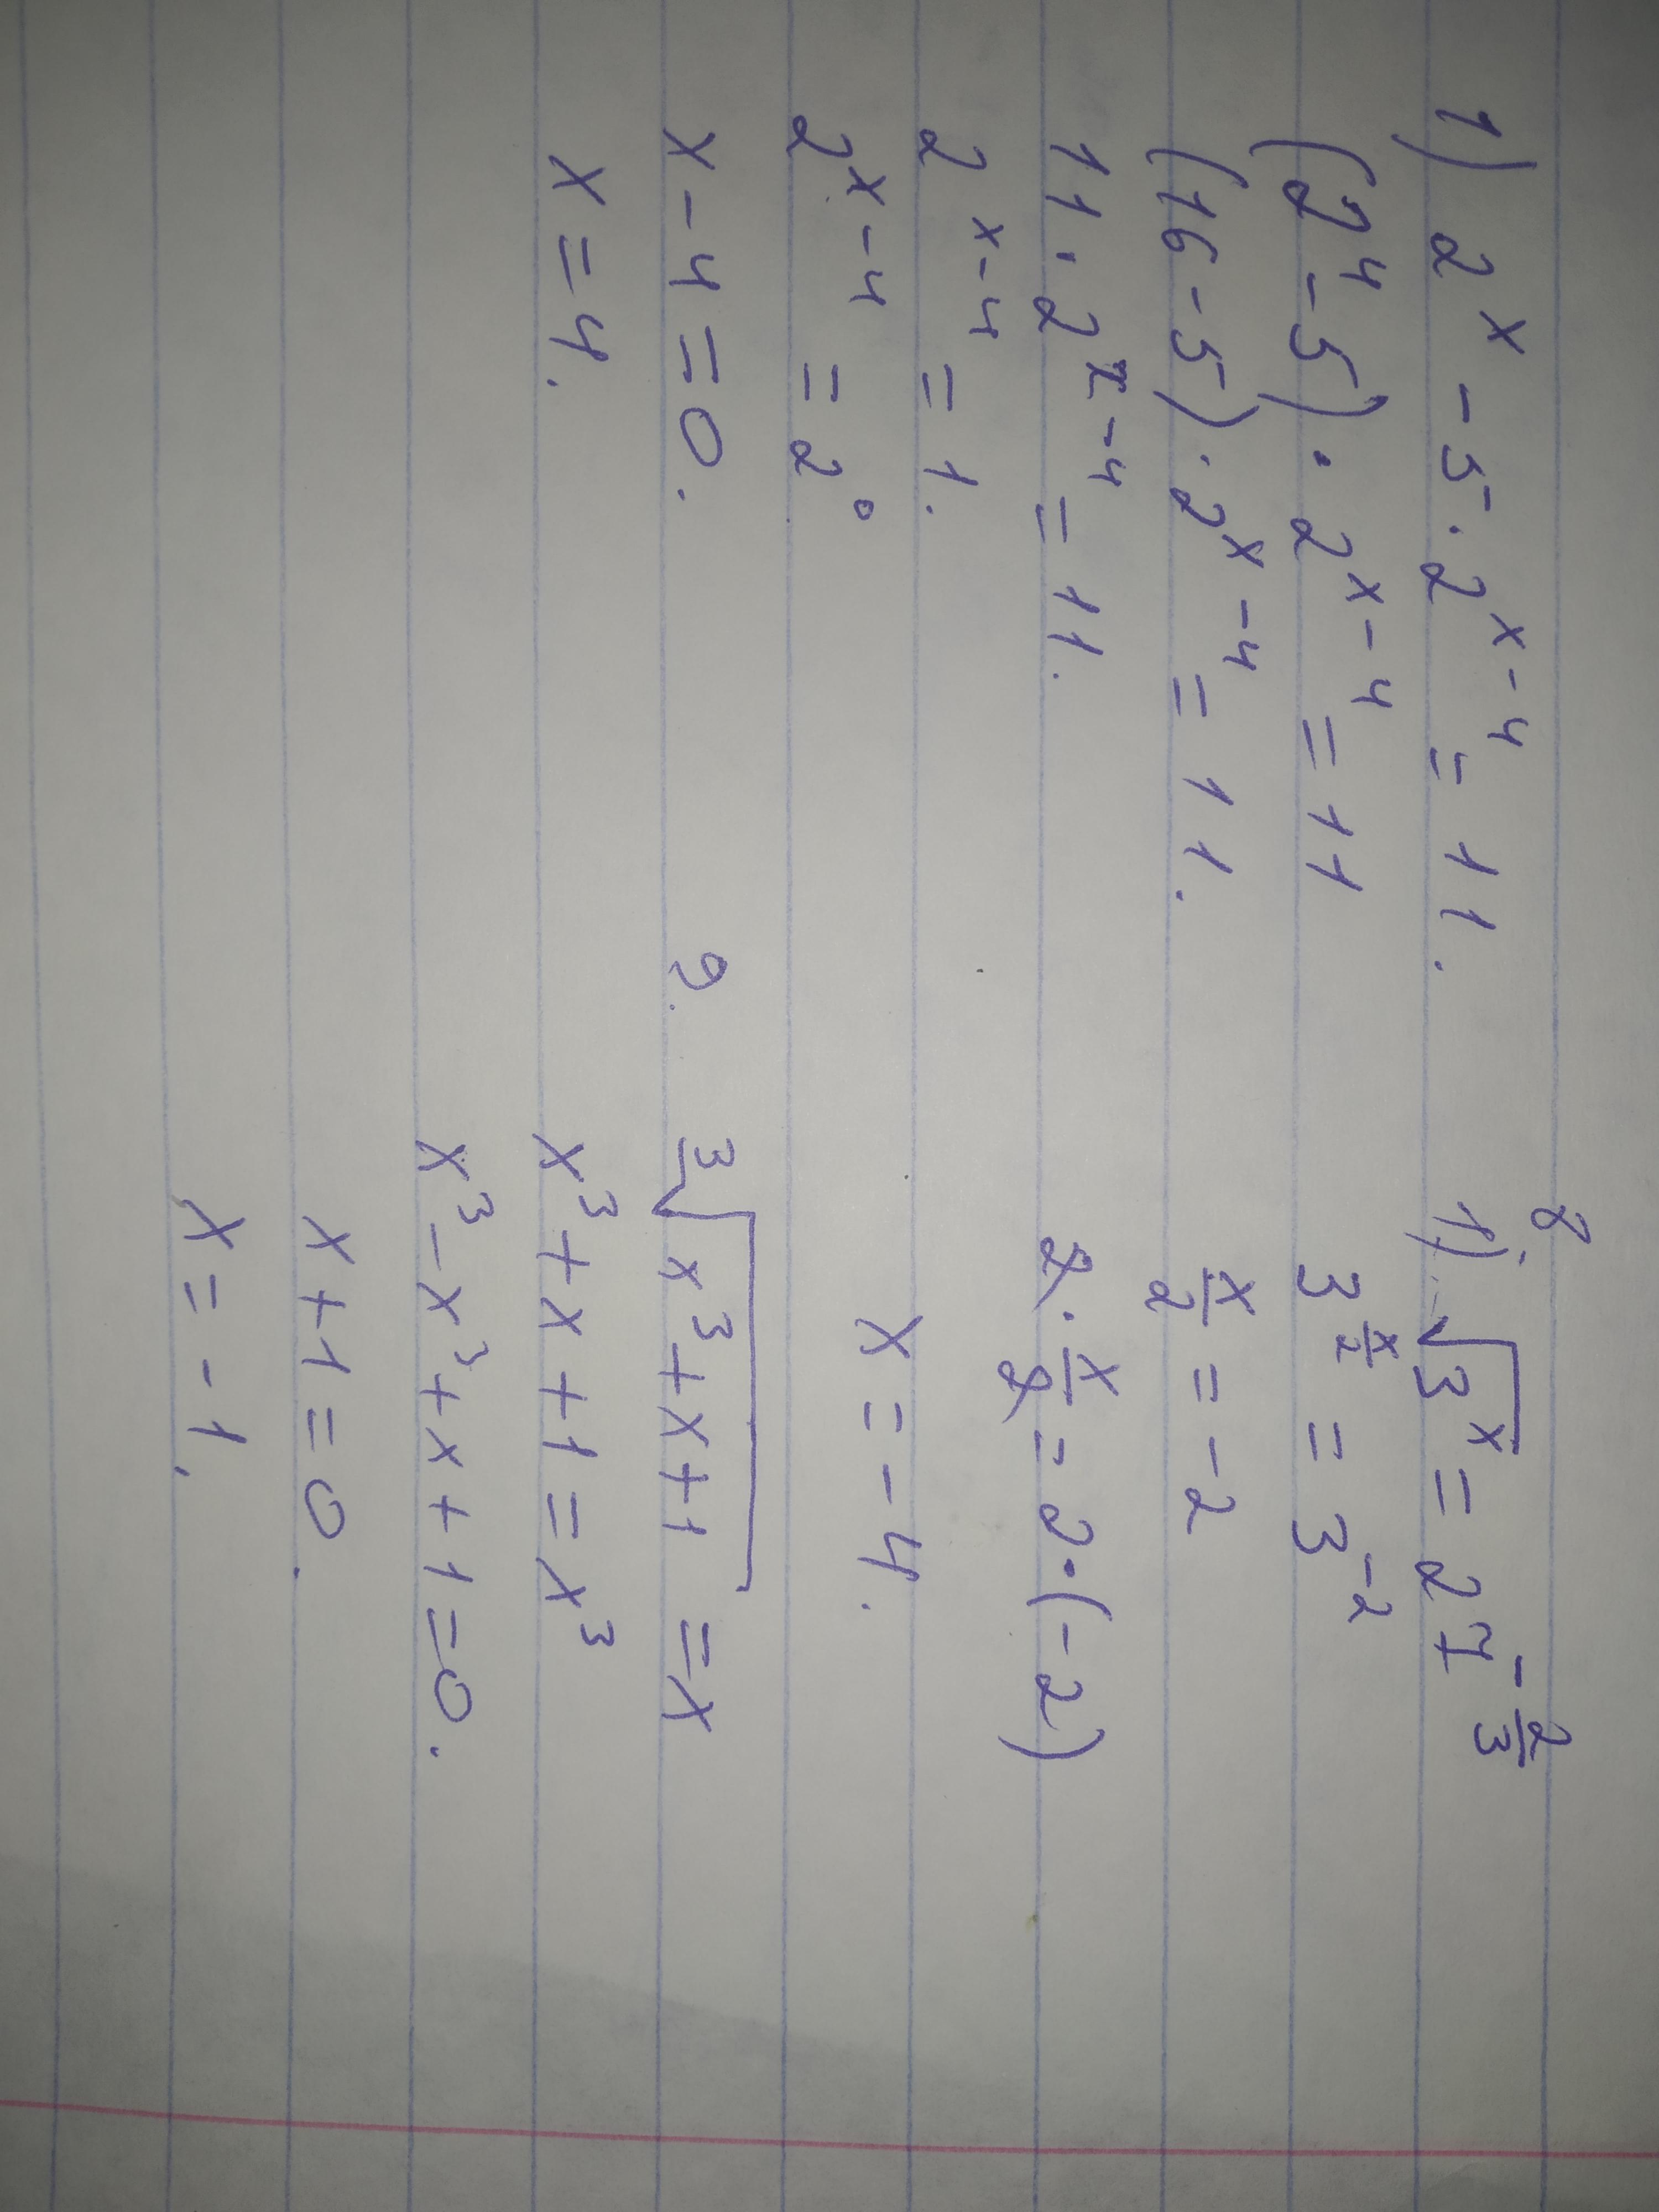 1) 2^x - 5 · 2^{x-4} = 11.
(2^4 - 5) · 2^{x-4} = 11
(16 - 5) · 2^{x-4} = 11.
11 · 2^{x-4} = 11.
2^{x-4} = 1.
2^{x-4} = 2^0
x - 4 = 0.
x = 4.
8
1) √(3^x) = 27^{-2/3}
3^{x/2} = 3^{-2}
x/2 = -2
2 · x/2 = 2 · (-2)
x = -4.
9. ∛(x^3 + x + 1) = x
x^3 + x + 1 = x^3
x^3 - x^3 + x + 1 = 0.
x + 1 = 0.
x = -1.